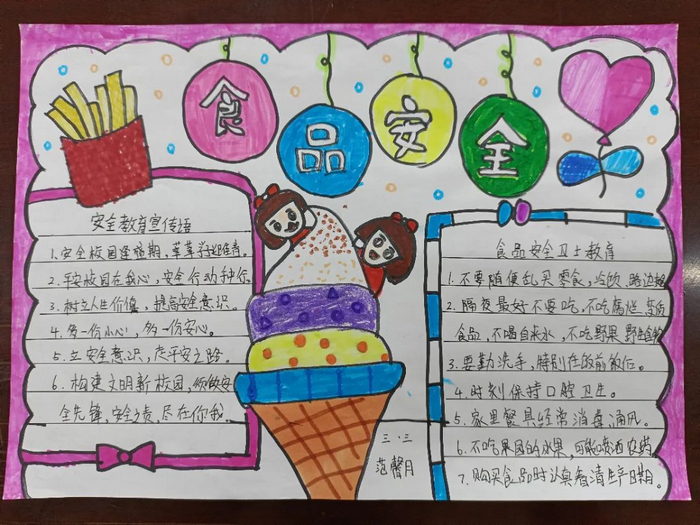 食品安全
安全教育宣传语
1.安全校园
2.平安校园在我心,安全行动
3.树立人生价值,提高安全意识。
4.多一份小心,多一份安心。
5.立安全意识,走平安之路。
6.构建文明新校园,
全先锋,安全之责,尽在你我
三.三
范馨月
食品安全卫士教育
1.不要随便乱买零食,冷饮,路边摊
2.隔夜最好不要吃,不吃腐烂、变质
食品,不喝自来水,不吃野果
3.要勤洗手,特别在
4.时刻保持口腔卫生。
5.家里餐具经常消毒通风。
6.不吃果园的水果,可能喷洒农药
7.购买食品时认真看清生产日期。